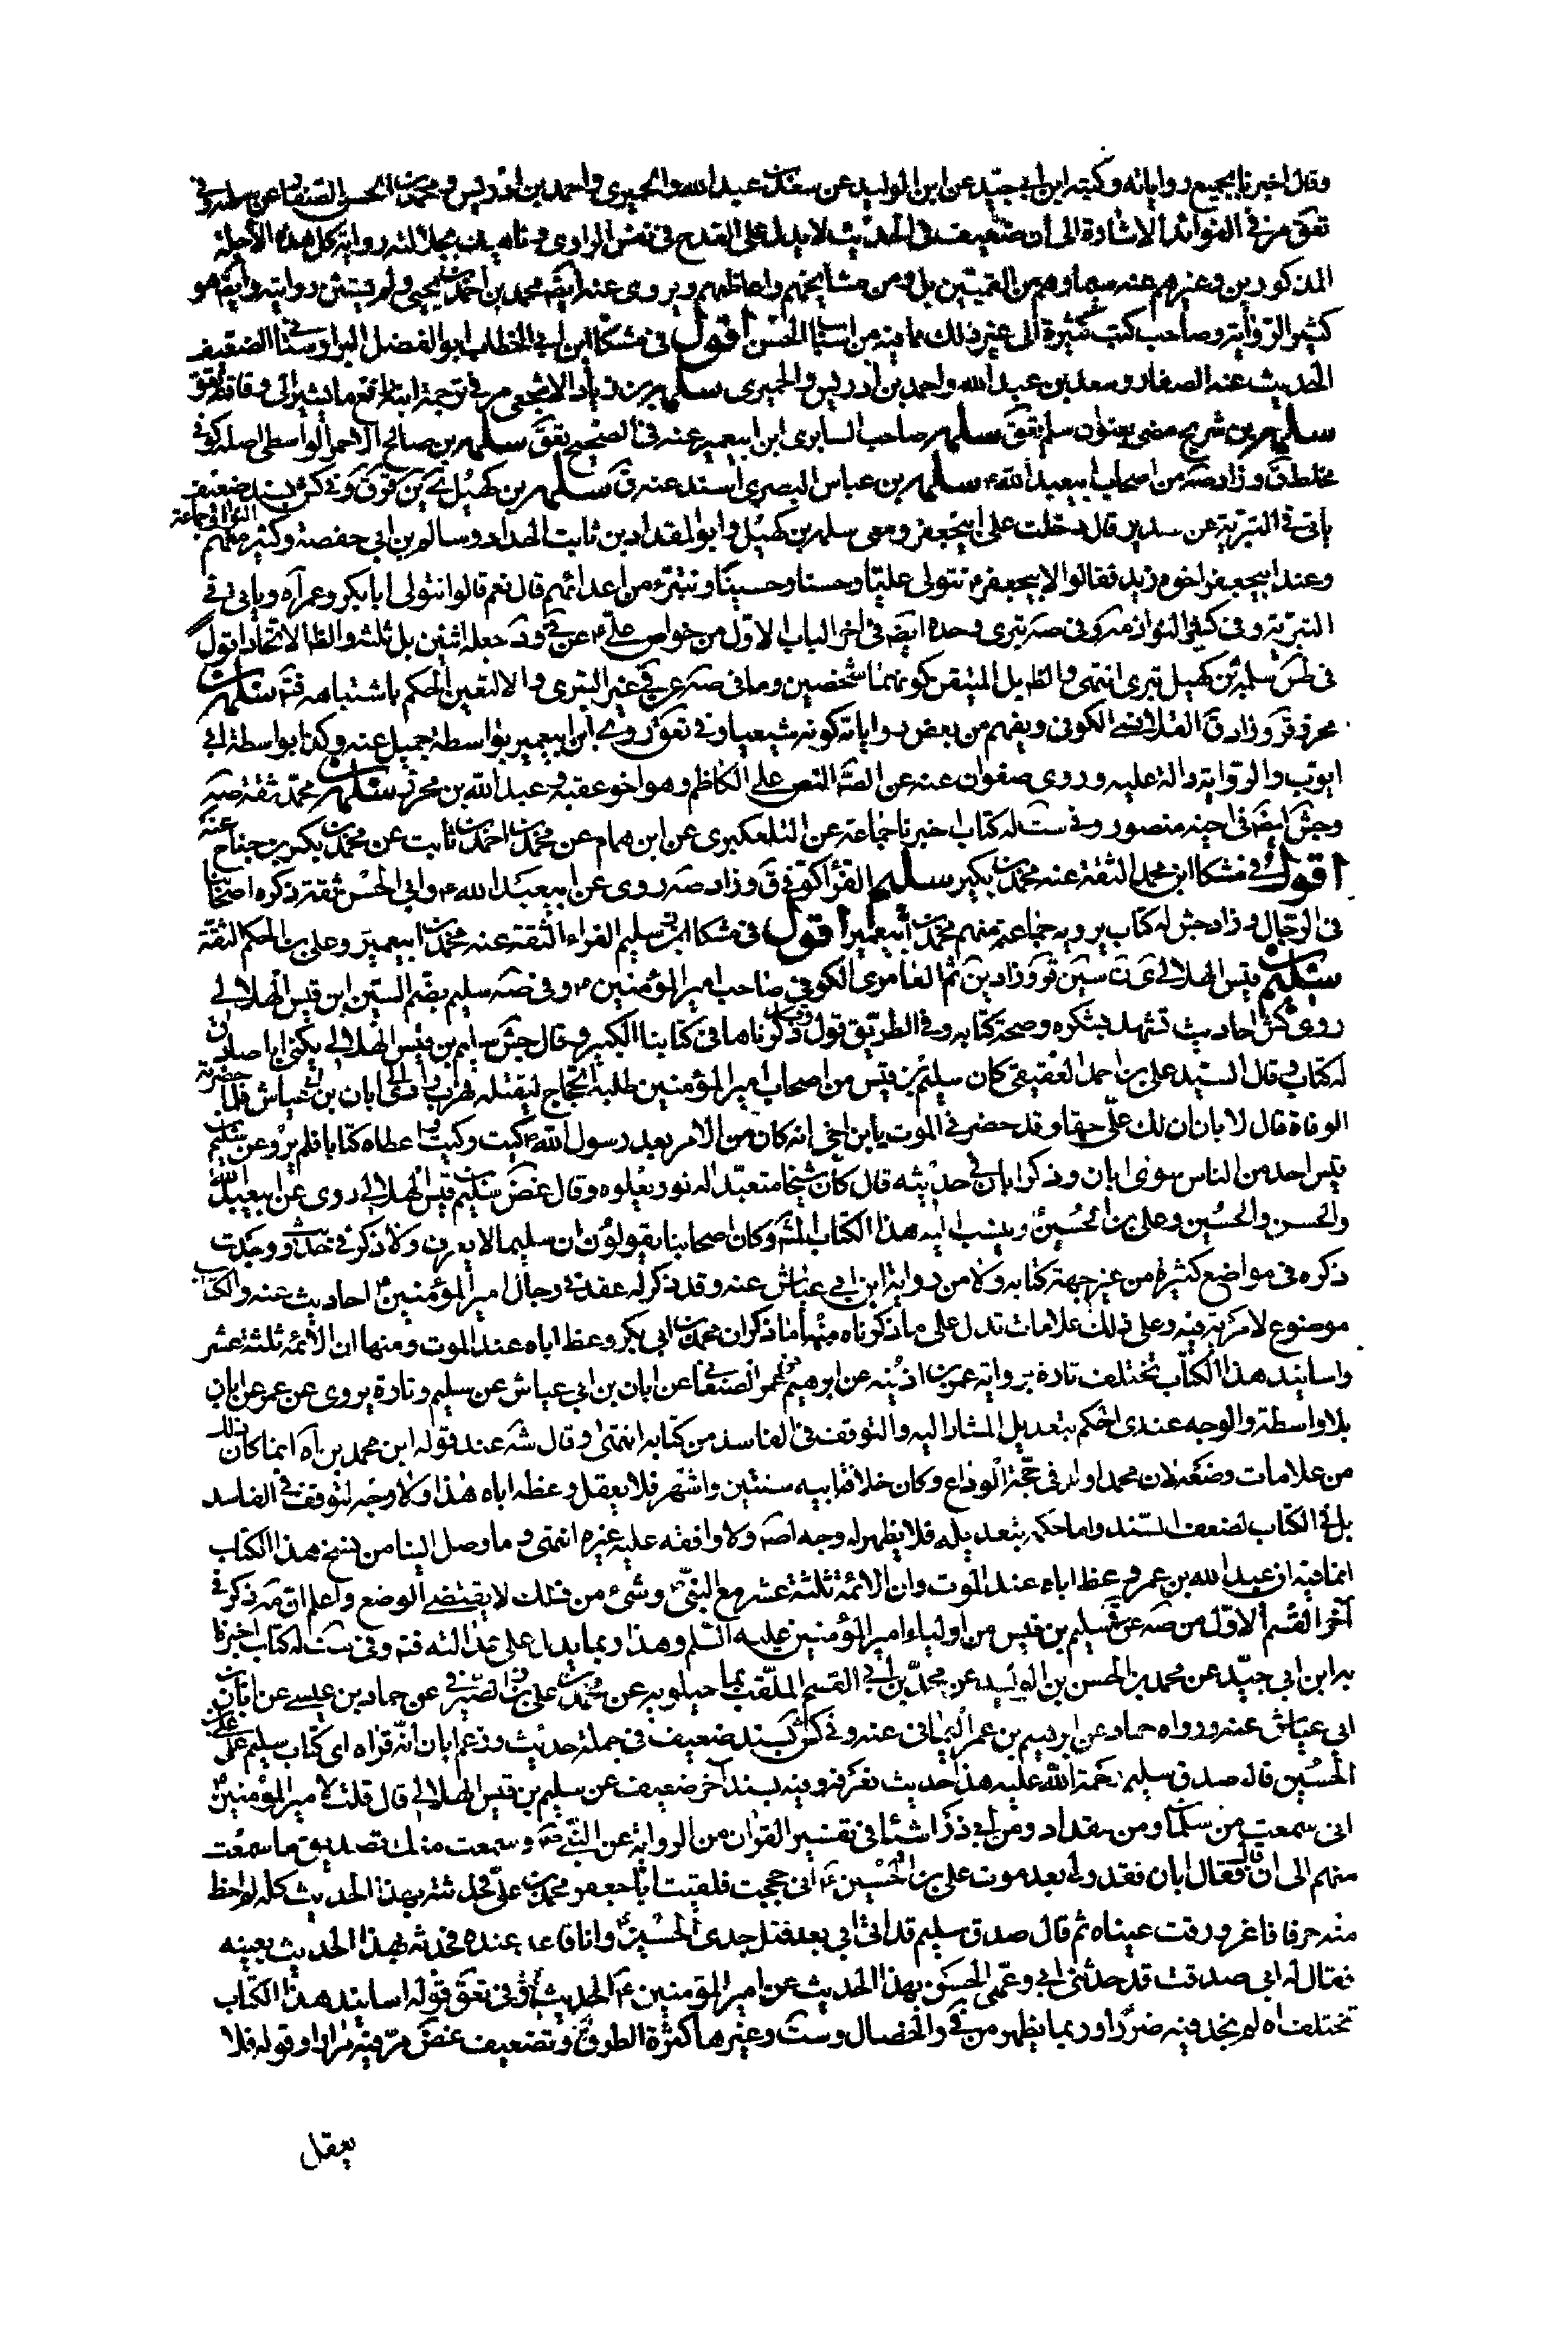 وقال اخبرنا بجميع رواياته وكتبه ابن ابي جيّد عن ابن الوليد عن سعد بن عبد الله والحميري واحمد بن ادريس ومحمد بن الحسن الصفار عن سلمة وفي
تعق مر في الفوائد الاشارة الى أن ضعيف في الحديث لا يدل على القدح في نفس الراوي و بجلالته رواية كل هذه الأجلة
المذكورين وغيرهم عنه سيما وهم من القميّين بل ومن مشايخهم واعاظمهم ويروي عنه ايضا محمد بن احمد بن يحيى ولم يستثن روايته وايضا هو
كثير الرواية وصاحب كتب كثيرة الى غير ذلك مما فيه من اسباب الحسن أقول في مشكا ابن الخطاب ابو الفضل البراوستاني الضعيف
الحديث عنه الصفار وسعد بن عبد الله واحمد بن ادريس والحميري سلمة بن زياد الاشجعي مر في ترجمة ابنه رافع ما يشير الى وثاقته تعق
سلمة بن شريح مضى بعنوان سلم تعق سلمة صاحب السابري ابن ابيعمير عنه في الصحيح تعق سلمة بن صالح الاحمر الواسطي اصله كوفي
مخلط ق وزاد صه من اصحاب ابيعبد الله ع سلمة بن عباس البصري اسند عنه ق سلمة بن كهيل ي ين قر ق وفي كش بسند ضعيف
يأتي في البترية عن سدير قال دخلت على ابيجعفر ومعي سلمة بن كهيل وابو المقداد بن ثابت الحداد وسالم بن ابي حفصة وكثير النوا في جماعة منهم
وعند ابيجعفر اخوه زيد فقالوا لابيجعفر ع نتولى عليّا وحسنا وحسينا ونتبرء من اعدائهم قال نعم قالوا نتولى ابا بكر وعمر اه ويأتي في
البترية وفي كثير النوا ذمه وفي صه بتري وحده ايضا في اخر الباب الاول من خواص علي ع عن قي ود جعله اثنين بل ثلثه والظا الاتحاد اقول
في طس سلمة بن كهيل بتري انتهى والظ بل المتيقن كونهما شخصين وما في صه عن قي غير البتري والا لتعين الحكم باشتباهه فتد سلمة بن
محرز قر وزاد ق القلانسي الكوفي ويفهم من بعض رواياته كونه شيعيا وفي تعق روى ابن ابيعمير بواسطة جميل عنه وكذا بواسطة ابي
ايوب والرواية دالة عليه وروى صفوان عنه عن الصه النص على الكاظم وهو اخو عقبة وعبد الله بن محرز سلمة بن محمد ثقة صه
وجش ايضا في اخيه منصور وفي ست له كتاب اخبرنا جماعة عن التلعكبري عن ابن همام عن محمد بن احمد بن ثابت عن محمد بن بكر بن جناح عنه
اقول في مشكا ابن محمد الثقة عنه محمد بن بكير سليم الفرّا كوفي ق وزاد صه روى عن ابيعبد الله ع وابي الحسن ثقة ذكره اصحابنا
في الرجال وزاد جش له كتاب يرويه جماعة منهم محمد بن ابيعمير اقول في مشكا ابن سليم الفراء الثقة عنه محمد بن ابيعمير وعلي بن الحكم الثقة
سليم بن قيس الهلالي ي ن سين قر وزاد ين ثم العامري الكوفي صاحب امير المؤمنين ع وفي صه سليم بضم السين ابن قيس الهلالي
روى كش احاديث تشهد بشكره وصحة كتابه وفي الطريق قول وقد ذكرناها في كتابنا الكبير وقال جش سليم بن قيس الهلالي يكنى ابا صادق
له كتاب وقال السيد علي بن احمد العقيقي كان سليم بن قيس من اصحاب امير المؤمنين طلبه الحجاج ليقتله فهرب واوى الى ابان بن ابي عياش فلما حضرته
الوفاة قال لابان ان لك عليّ حقا وقد حضرني الموت يا بن اخي انه كان من الامر بعد رسول الله ص كيت وكيت واعطاه كتابا فلم يرو عن سليم بن
قيس احد من الناس سوى ابان وذكر ابان في حديثه قال كان شيخا متعبّدا له نور يعلوه وقال غض سليم بن قيس الهلالي روى عن ابيعبد الله
والحسن والحسين وعلي بن الحسين ع وينسب اليه هذا الكتاب المشهور وكان اصحابنا يقولون ان سليما لا يعرف ولا ذكر في حديث ووجدت
ذكره في مواضع كثيرة من غير جهة كتابه ولا من رواية ابن ابي عياش عنه وقد ذكر له عقد في رجال امير المؤمنين ع احاديث عنه والكتاب
موضوع لا مرية فيه وعلى ذلك علامات تدل على ما ذكرناه منها ما ذكر ان محمد بن ابي بكر وعظ اباه عند الموت ومنها ان الأئمة ثلثة عشر
واسانيد هذا الكتاب تختلف تارة برواية عمر بن اذينه عن ابرهيم بن عمر الصنعاني عن ابان بن ابي عياش عن سليم وتارة يروي عن عمر عن ابان
بلا واسطة والوجه عندي الحكم بتعديل المشار اليه والتوقف في الفاسد من كتابه انتهى وقال شه عند قوله ابن محمد بن اه انما كان ذلك
من علامات وضعه لان محمدا ولد في حجة الوداع وكان خلافة ابيه سنتين واشهر فلا يعقل وعظه اباه هذا ولا وجه للتوقف في الفاسد
بل في الكتاب لضعف السند واما حكمه بتعديله فلا يظهر له وجه اصلا ولا وافقه عليه غيره انتهى وما وصل الينا من نسخ هذا الكتاب
انما فيه ان عبد الله بن عمر وعظ اباه عند الموت وان الائمة ثلثة عشر مع النبي ص وشيء من ذلك لا يقتضي الوضع واعلم ان مه ذكر في
آخر القسم الاول من صه عن قي سليم بن قيس من اولياء امير المؤمنين عليه السلم وهذا ربما يدل على عدالته فتد وفي ست له كتاب اخبرنا
به ابن ابي جيّد عن محمد بن الحسن بن الوليد عن محمد بن ابي القسم الملقب بما جيلويه عن محمد بن علي الصيرفي عن حماد بن عيسى عن ابان بن
ابي عياش عنه ورواه حماد عن ابرهيم بن عمر اليماني عنه وفي كش بسند ضعيف في جملة حديث وزعم ابان انه قراه اي كتاب سليم على علي بن
الحسين قال صدق سليم رحمة الله عليه هذا حديث نعرفه وفيه بسند آخر ضعيف عن سليم بن قيس الهلالي قال قلت لامير المؤمنين ع
اني سمعت من سلمان ومن مقداد ومن ابي ذر اشياء في تفسير القران من الرواية عن النبي ص وسمعت منك تصديق ما سمعت
منهم الى ان قال فقال ابان فقدر لي بعد موت علي بن الحسين ع اني حججت فلقيت ابا جعفر محمد بن علي فحدثته بهذا الحديث كله لم احط
منه حرفا فاغرورقت عيناه ثم قال صدق سليم قد اتى ابي بعد قتل جدي الحسين ع وانا قاعد عنده فحدثه بهذا الحديث بعينه
فقال له ابي صدقت قد حدثني ابي وعمي الحسن بهذا الحديث عن امير المؤمنين ع الحديث وفي تعق قوله اسانيد هذا الكتاب
تختلف اه لم نجد فيه ضررا وربما يظهر من في والخصال وست وغيرها كثرة الطرق وتضعيف غض مر فيه مرارا وقوله فلا
يعقل